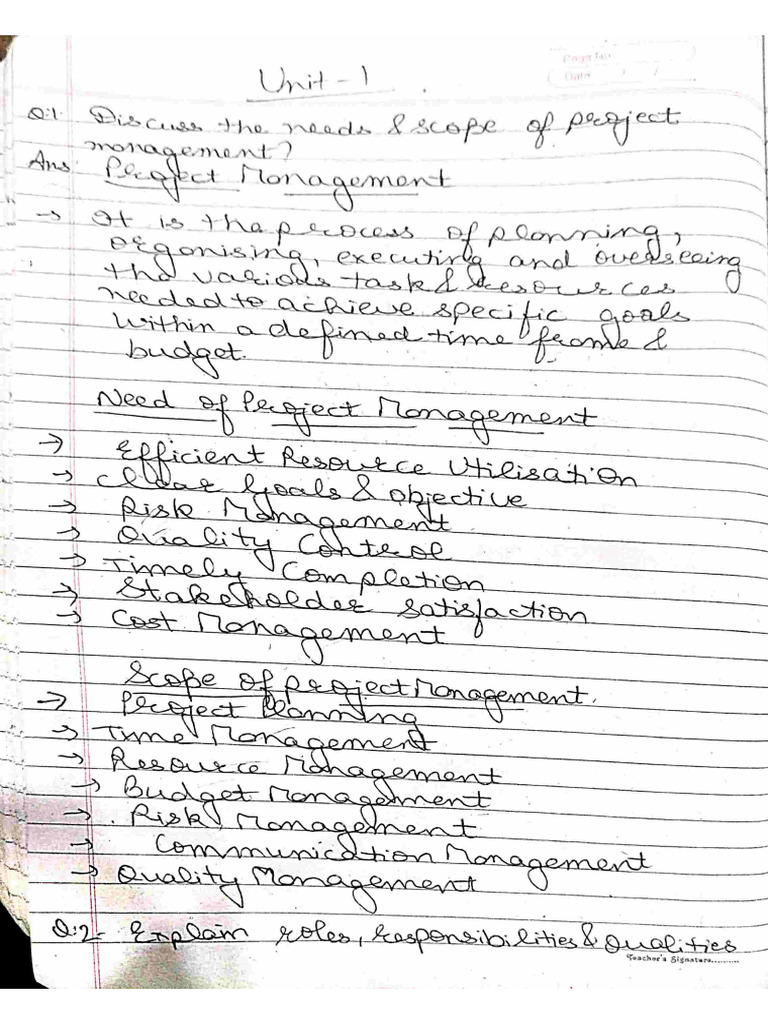 Page No.
Date / /
Unit-1
Q:1. Discuss the needs & scope of project
management?
Ans: Project Management
→ It is the process of planning,
organising, executing and overseeing
the various task & resources
needed to achieve specific goals
within a defined time frame &
budget.
Need of Project Management
→ Efficient Resource Utilisation
→ Clear Goals & objective
→ Risk Management
→ Quality Control
→ Timely Completion
→ Stakeholder satisfaction
→ Cost Management
Scope of project Management.
→ Project Planning
→ Time Management
→ Resource Management
→ Budget Management
→ Risk Management
→ Communication Management
→ Quality Management
Q:2- Explain roles, responsibilities & Qualities
Teacher's Signature..........